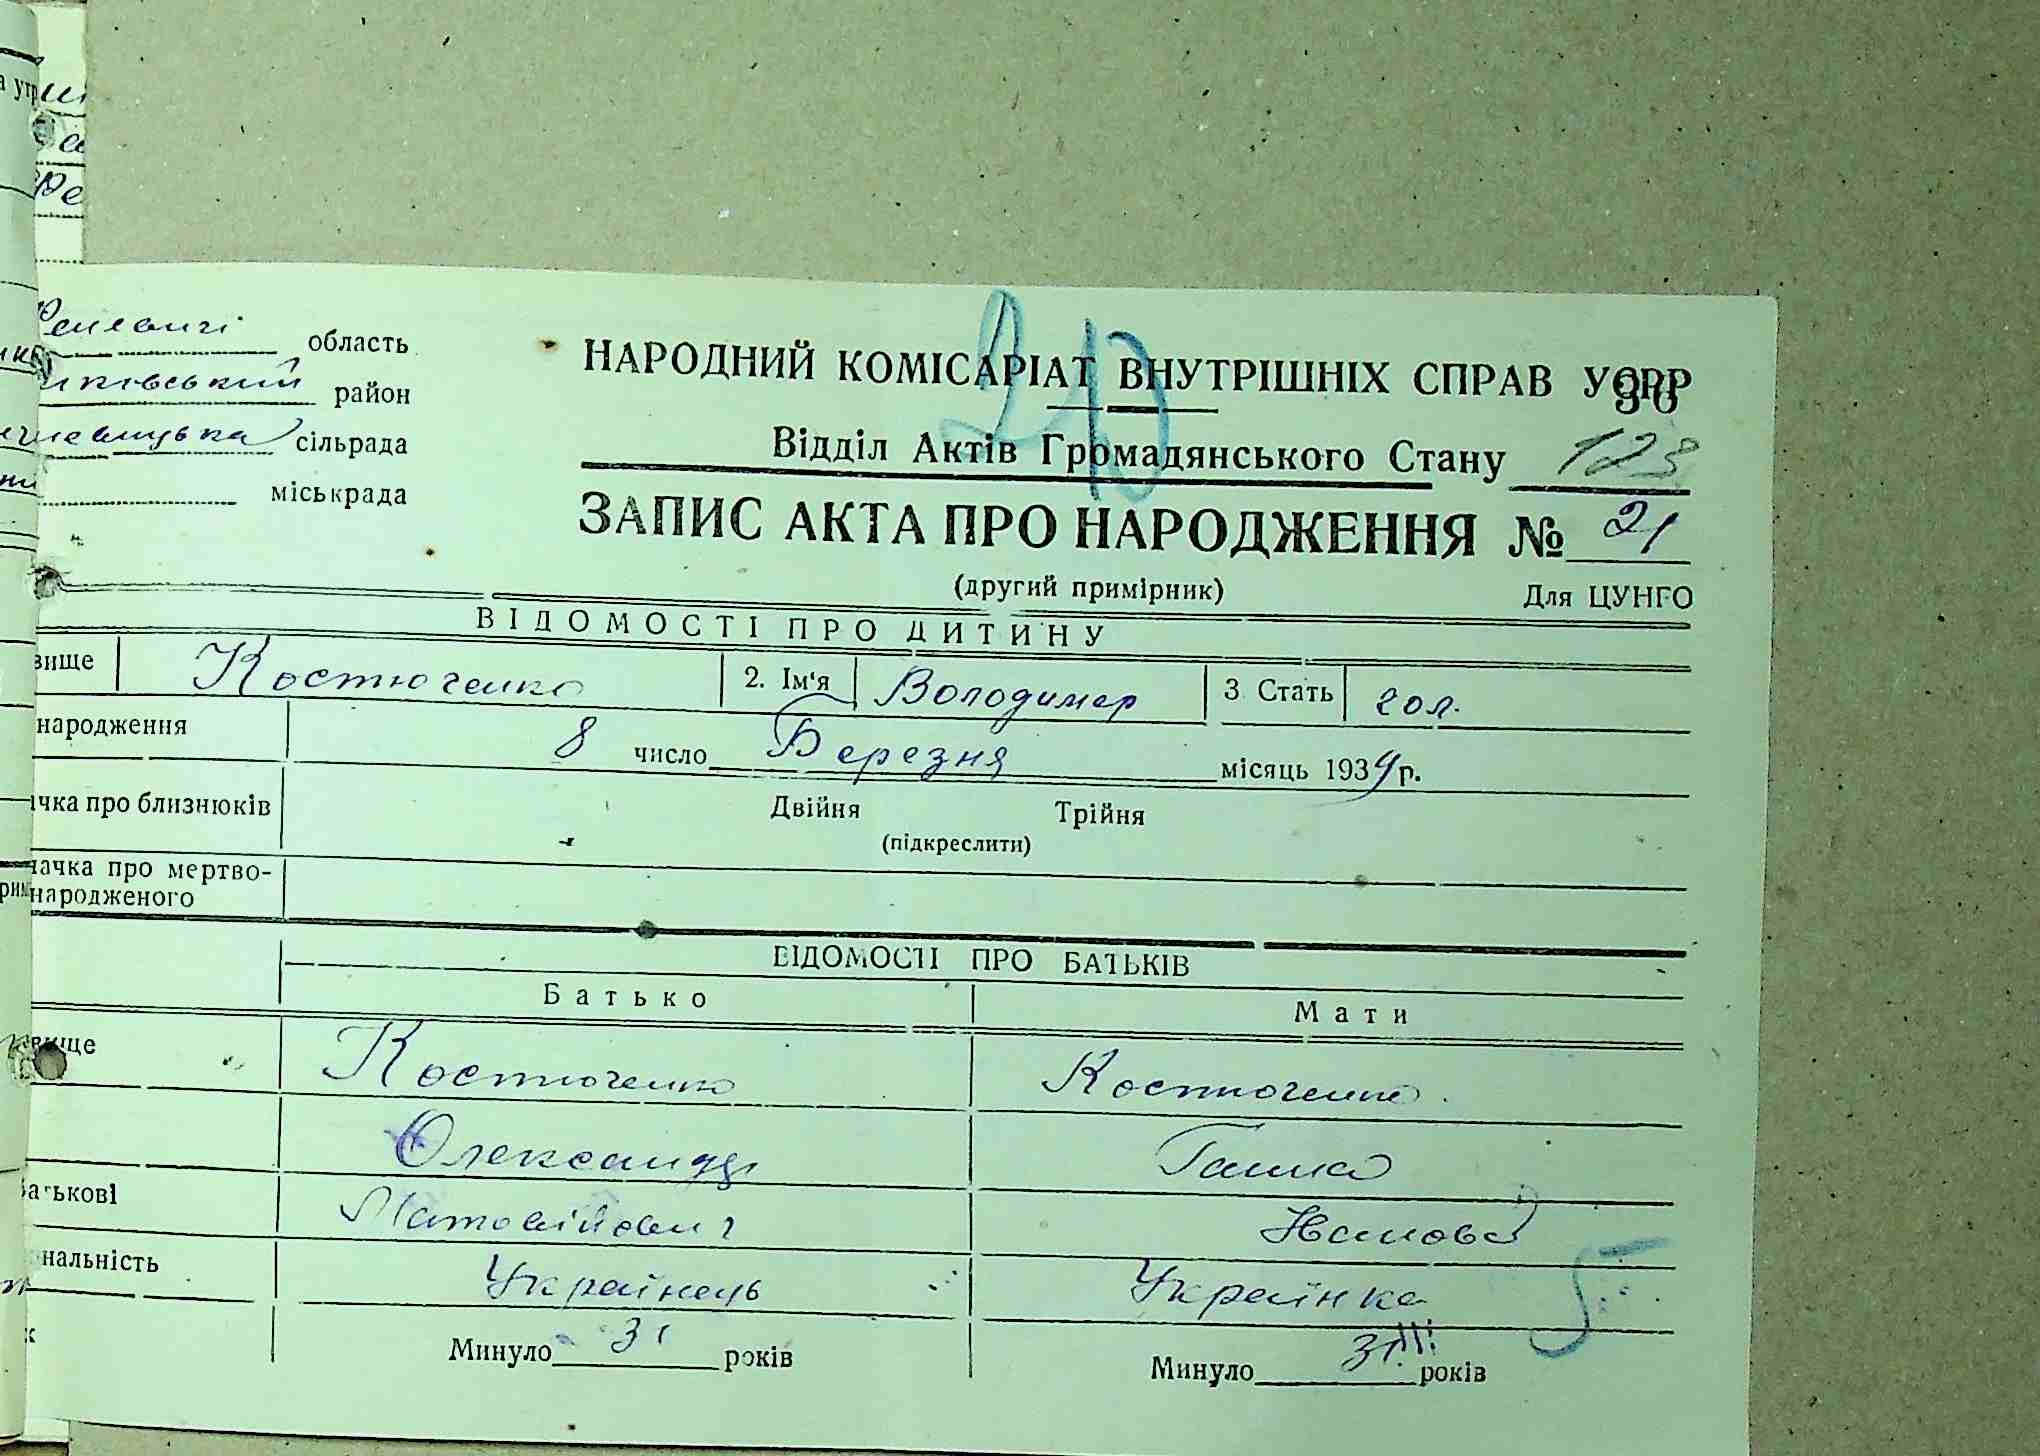 область
НАРОДНИЙ КОМІСАРІАТ ВНУТРІШНІХ СПРАВ УСРР
район
36
сільрада
Відділ Актів Громадянського Стану 123
міськрада
ЗАПИС АКТА ПРО НАРОДЖЕННЯ № 21
(другий примірник) Для ЦУНГО
ВІДОМОСТІ ПРО ДИТИНУ
вище Костюченко 2. Ім'я Володимер 3 Стать чол.
народження 8 число Березня місяць 1934 р.
ачка про близнюків Двійня Трійня
(підкреслити)
начка про мертво-
народженого
ВІДОМОСТІ ПРО БАТЬКІВ
Батько Мати
вище Костюченко Костюченко
Олександр Ганна
батькові Матвійович Іванова
нальність Українець Українка
Минуло 31 років Минуло 31 років